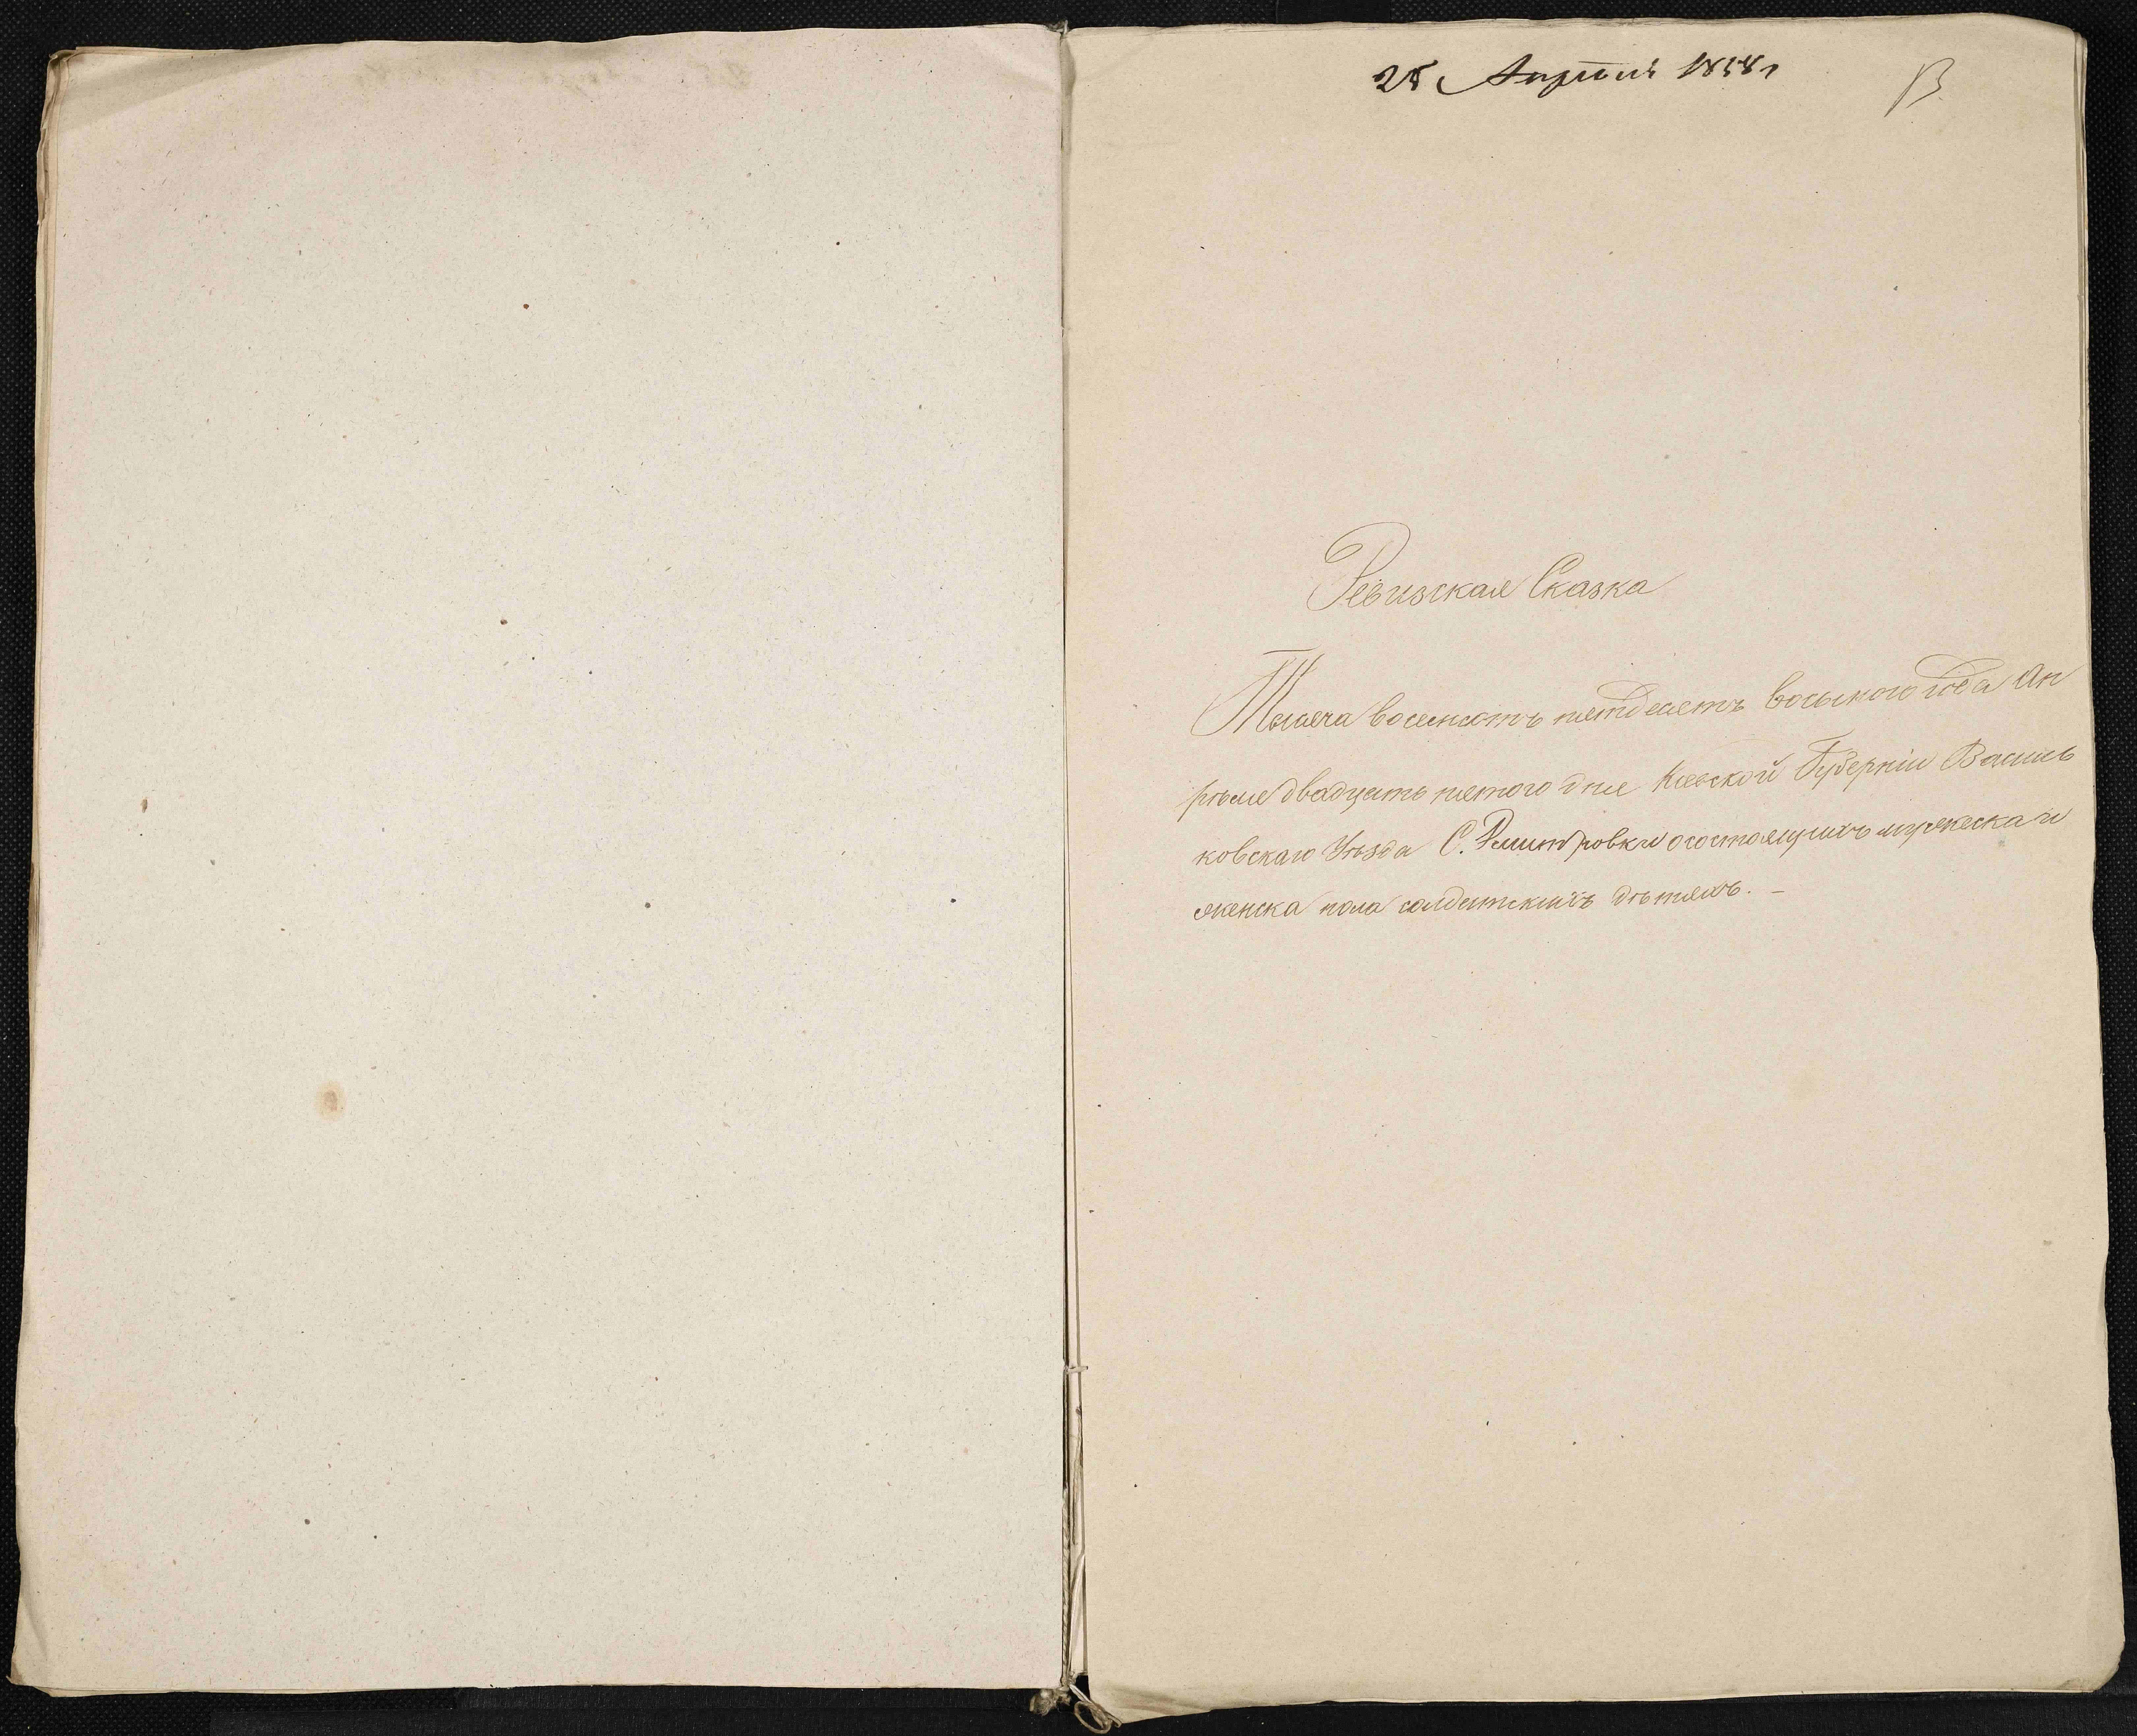 25 Апрѣля 1858 г
13
Ревизская Сказка
Тысяча восемсотъ пятдесятъ восьмого года Ап
рѣля двадцать пятого дня Кіевской Губерніи Василь
ковскаго Уѣзда С. о состоящихъ мужеска и
женска пола солдатскихъ дѣтяхъ. -